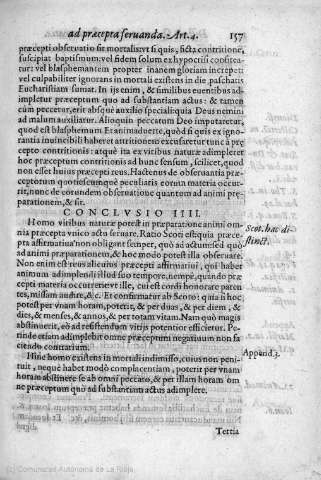 ad præcepta seruanda. Art. 4. 157
præcepti obseruatio sit mortalis: vt si quis, ficta contritione,
suscipiat baptismum: vel fidem solum ex hypocrisi confitea-
tur: vel blasphemantem propter inanem gloriam increpet:
vel culpabiliter ignorans in mortali existens in die paschatis
Eucharistiam sumat. In ijs enim, & similibus euentibus ad-
impletur præceptum quo ad substantiam actus: & tamen
cùm peccetur, erit absque auxilio speciali: quia Deus nemini
ad malum auxiliatur. Alioquin peccatum Deo imputaretur,
quod est blasphemum Et animaduerte, quòd si quis ex igno-
rantia inuincibili haberet attritionem excusaretur tunc à præ
cepto contritionis: atque ita ex viribus naturæ adimpleret
hoc præceptum contritionis ad hunc sensum, scilicet, quod
non esset huius præcepti reus. Hactenus de obseruantia præ-
ceptorum quotiescumque peculiaris eorum materia occur-
rit, nunc de eorundem obseruatione quantum ad animi præ-
parationem, & sit.
CONCLVSIO IIII.
Homo viribus naturæ potest in præparatione animi om-
nia præcepta vnico actu seruare. Ratio Scoti est: quia præce-
pta affirmatiua non obligant semper, quò ad actum: sed quo
ad animi præparationem, & hoc modo potest illa obseruare.
Non enim est reus alicuius præcepti affirmatiui, qui habet
animum adimplendi illud suo tempore, nempe, quando præ
cepti materia occurrerit: vt ille, cui est cordi honorare paren-
tes, missam audire, &c. Et confirmatur ab Scoto: quia si hoc
potest per vnam horam, poterit, & per duas, & per diem, &
dies, & menses, & annos, & per totam vitam. Nam quò magis
abstinuerit, eò ad resistendum vitijs potentior efficietur. Pe-
rinde etiam adimplebit omne præceptum negatiuum non fa
ciendo contrarium.
Hinc homo existens in mortali indimisso, cuius non peni-
tuit, neque habet modò complacentiam, poterit per vnam
horam abstinere se ab omni peccato, & per illam horam om
ne præceptum quò ad substantiam actus adimplere.
Tertia
Scot. hac di-
stinct.
Append. 3.
(c) Comunidad Autónoma de La Rioja